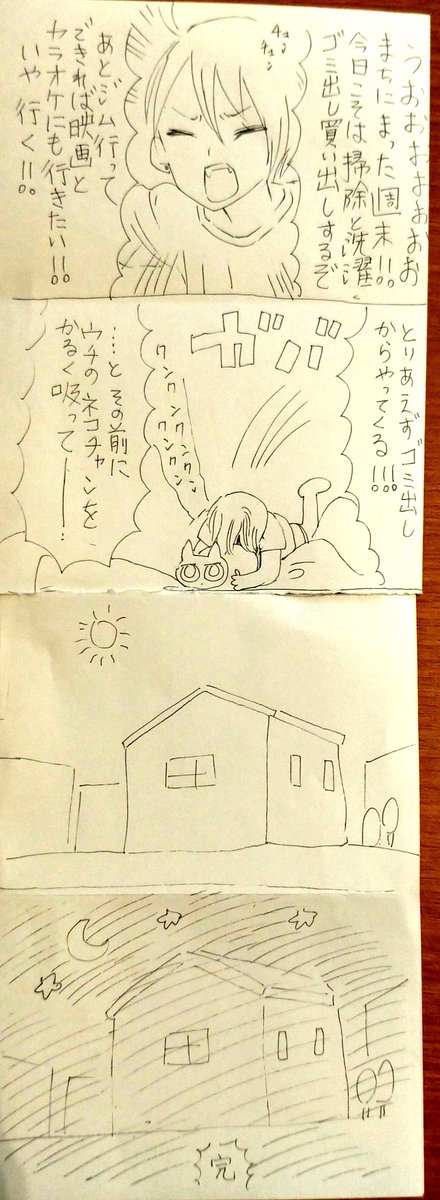 うおおおおおおおお
まちにまった週末!!!
今日こそは掃除と洗濯と
ゴミ出し買い出しするぞ
チュン
チュン
あとジム行って
できれば映画と
カラオケにも行きたい!!!
いや 行く!!!
とりあえずゴミ出し
からやってくる!!!
ガバ
クンクンクンクンクンクン
…と その前に
ウチのネコチャンを
かるく吸って―――…
完